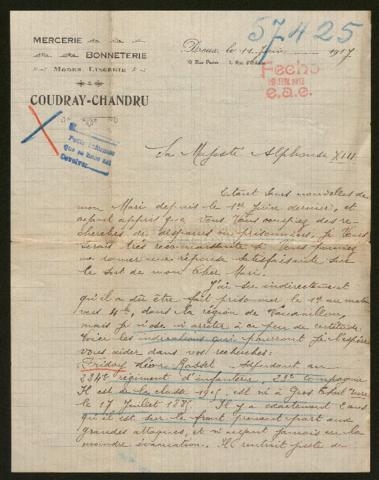 MERCERIE
BONNETERIE
MODES, LINGERIE
COUDRAY-CHANDRU
57425
Dreux, le 11 Juin 1917
Fecho
e.a.e.
Sa Majesté Alphonse XIII
Etant sans nouvelles de
mon Mari depuis le 1er Juin dernier, et
ayant appris que vous vous occupiez des re-
cherches de disparus ou prisonniers, je vous
serais très reconnaissante si vous pouviez
me donner une réponse satisfaisante sur
le sort de mon cher Mari.
J'ai su indirectement
qu'il a dû être fait prisonnier le 1er au matin
vers 4h, dans la région de
mais je n'ose m'arrêter à ce peu de certitude.
Voici les indications qui pourront, je l'espère
vous aider dans vos recherches:
Friday
234e régiment d'infanterie, 23e compagnie
Il est de la classe 1905, est né à
le 17 Juillet 1885. Il y a exactement 2 ans
qu'il est sur le front prenant part aux
grandes attaques, et n'ayant jamais eu la
moindre évacuation. Il